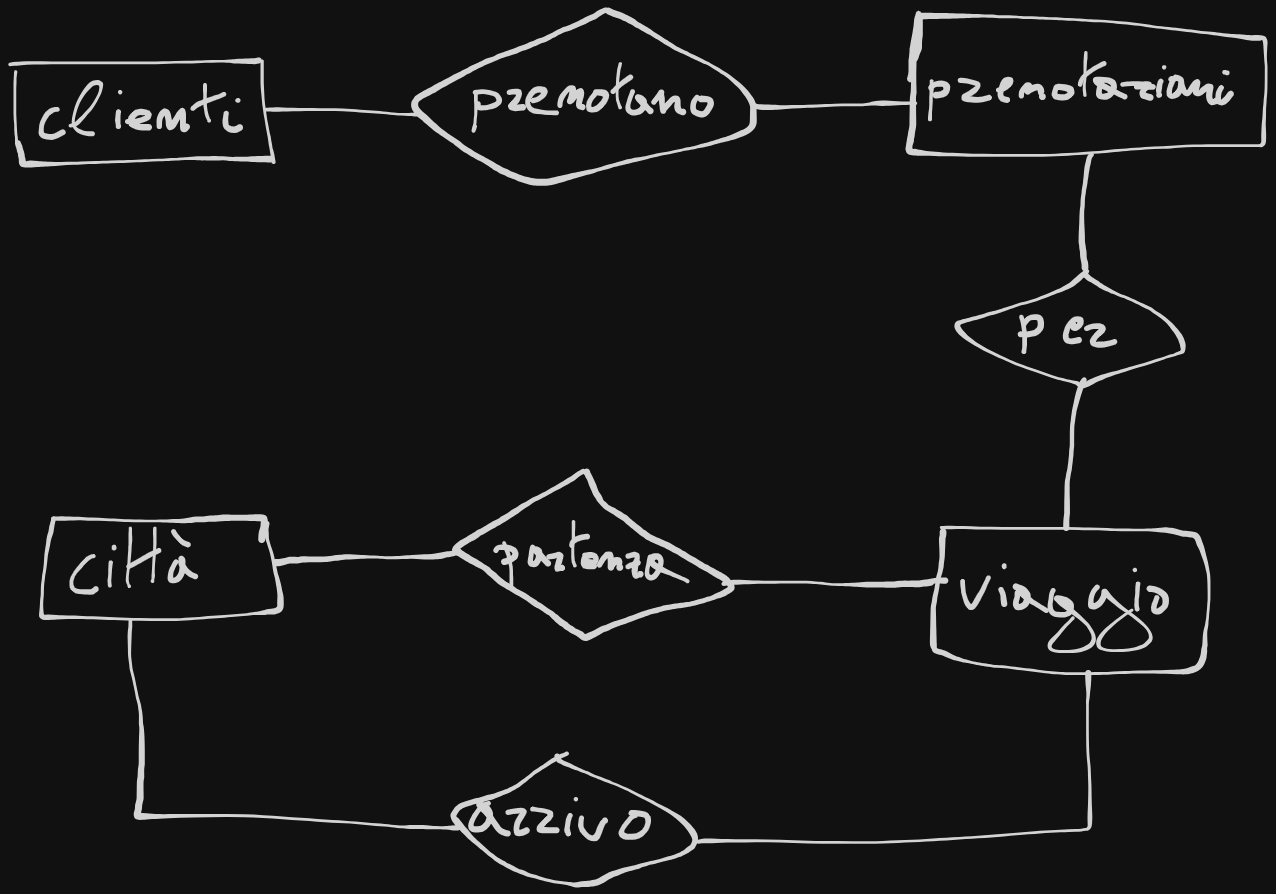 clienti
prenotano
prenotazioni
per
città
partenza
viaggio
arrivo